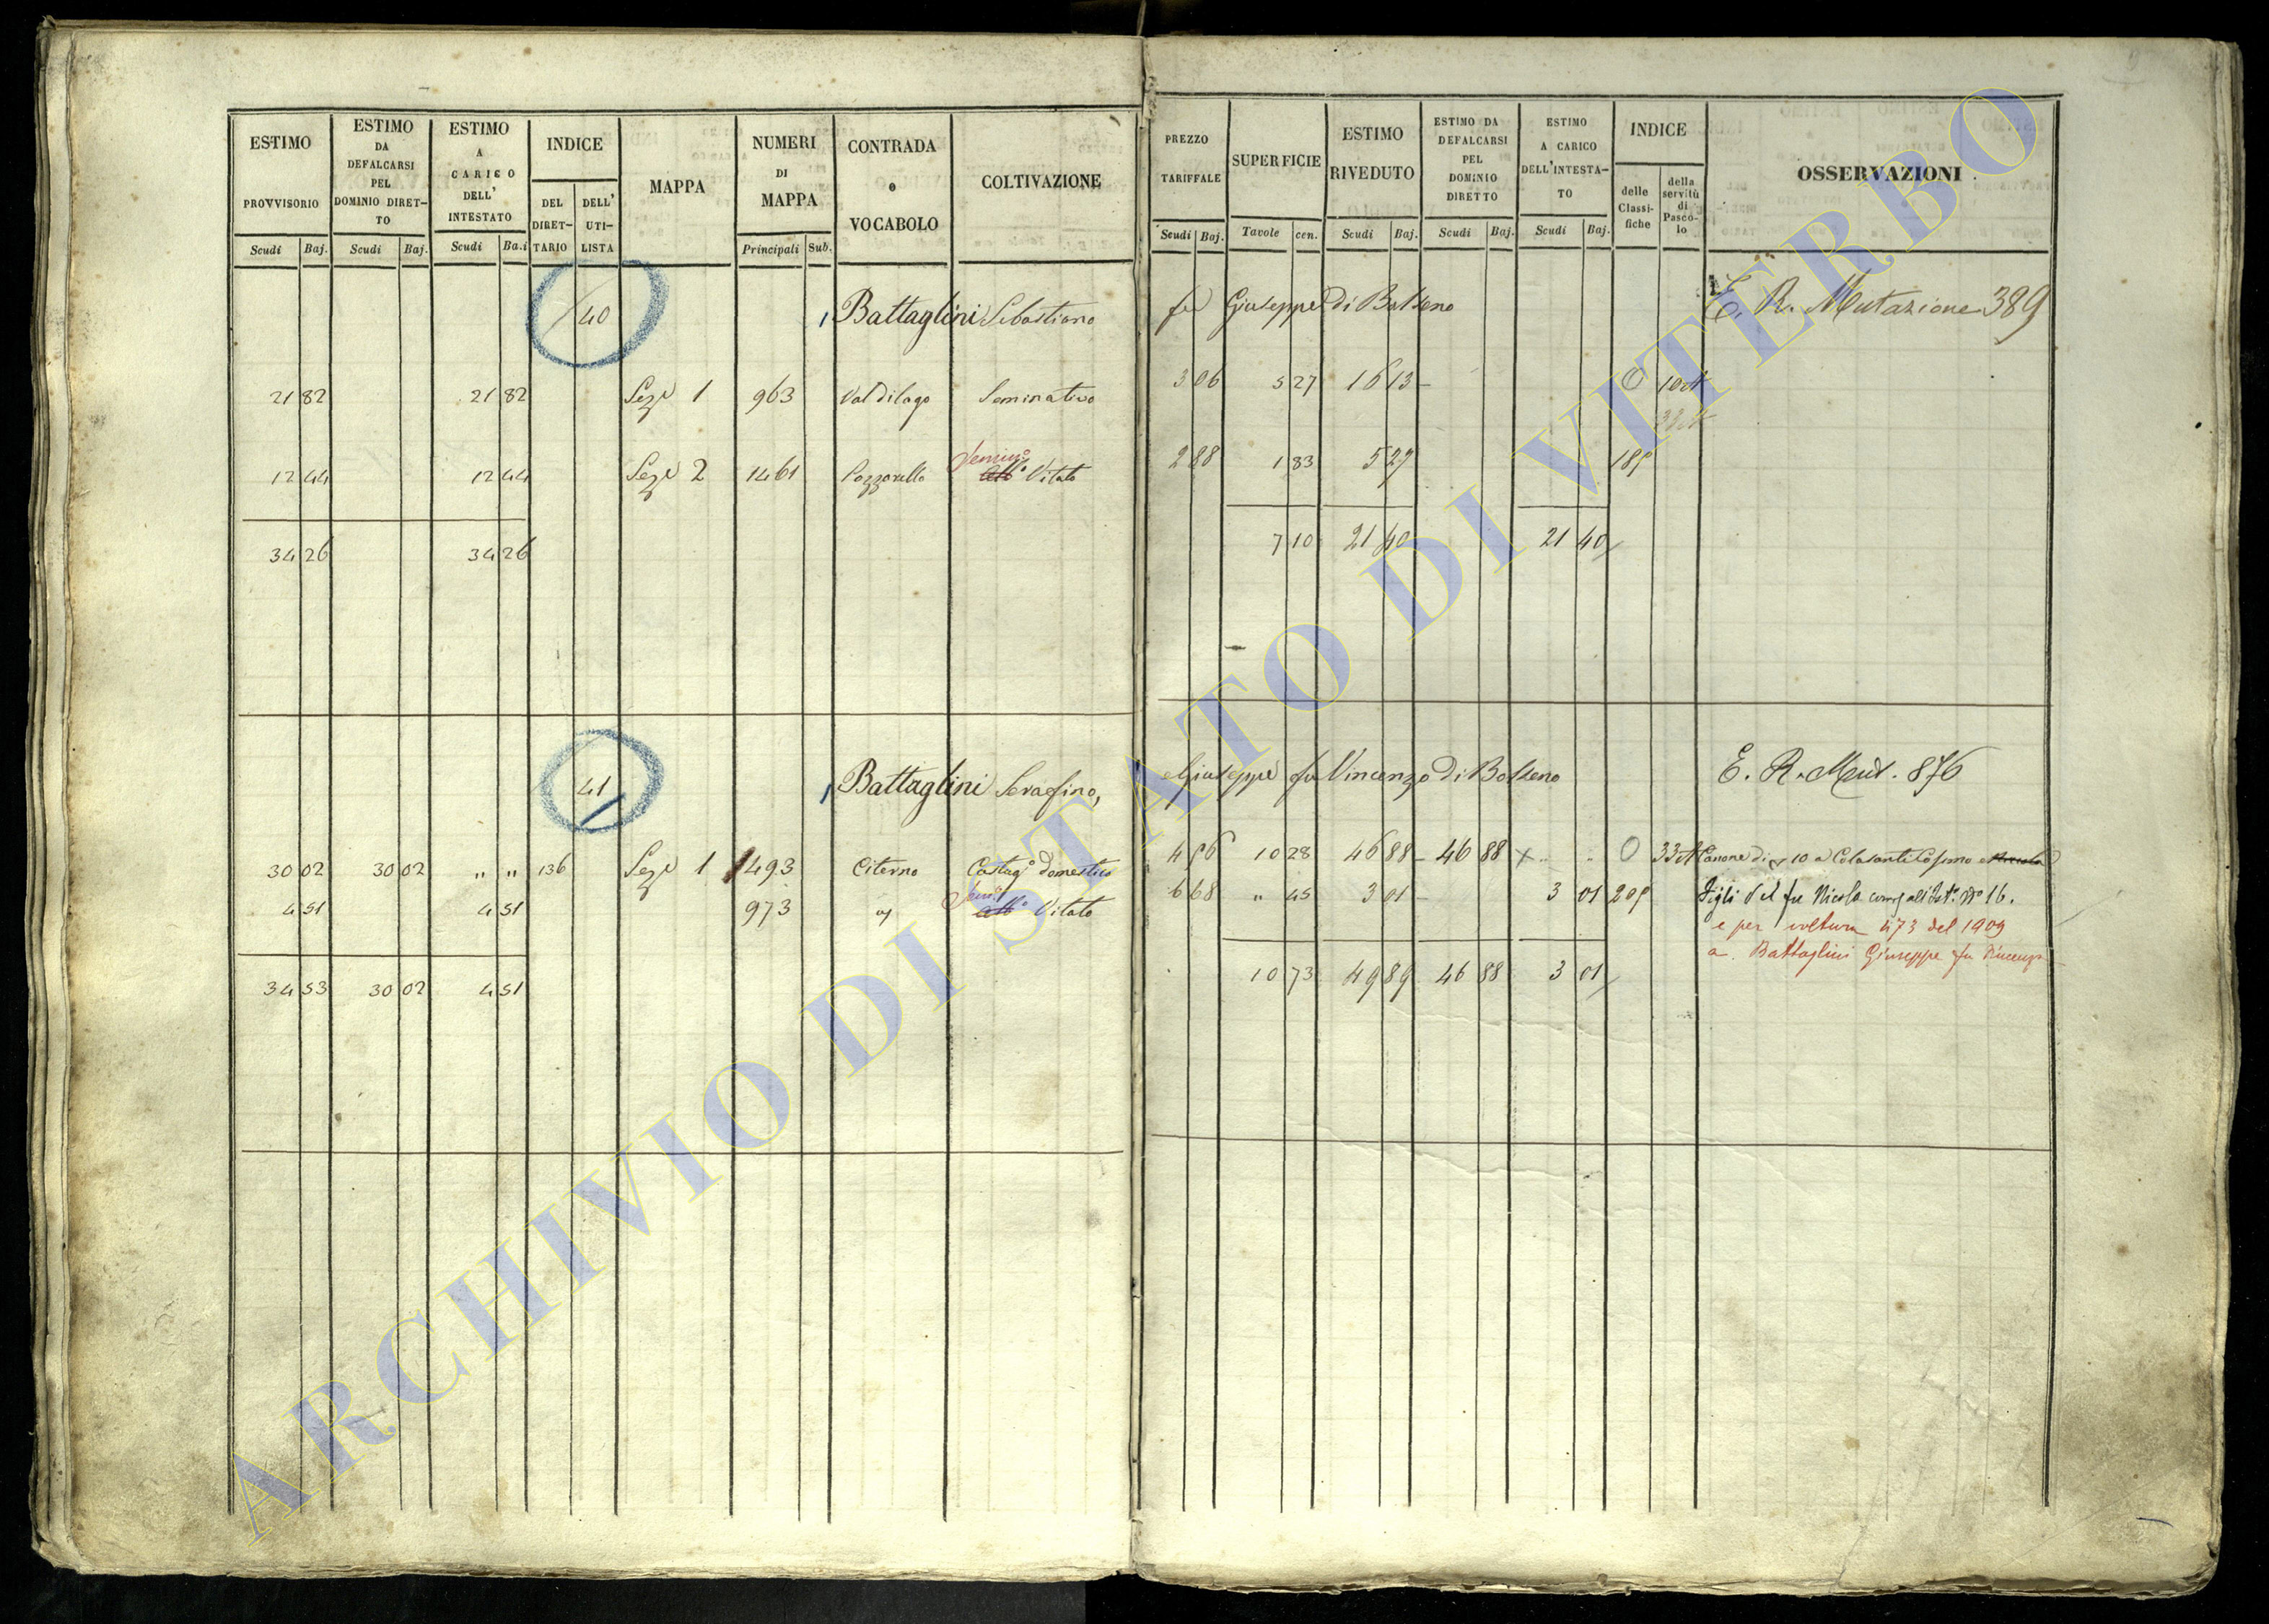 ESTIMO PROVVISORIO Scudi Baj.
ESTIMO DA DEFALCARSI PEL DOMINIO DIRETTO Scudi Baj.
ESTIMO A CARICO DELL' INTESTATO Scudi Baj.
INDICE DEL DIRETTARIO DELL' UTILISTA
MAPPA
NUMERI DI MAPPA Principali Sub.
CONTRADA o VOCABOLO
COLTIVAZIONE
PREZZO TARIFFALE Scudi Baj.
SUPERFICIE Tavole cen.
ESTIMO RIVEDUTO Scudi Baj.
ESTIMO DA DEFALCARSI PEL DOMINIO DIRETTO Scudi Baj.
ESTIMO A CARICO DELL'INTESTATO Scudi Baj.
INDICE delle Classifiche della servitù di Pascolo
OSSERVAZIONI
40 Battaglini Sebastiano fu Giuseppe di Bolseno E. R. Mutazione 389
21 82 21 82 Seze 1 963 Val di lago Seminativo 3 06 5 27 16 13 0
12 44 12 44 Seze 2 1461 Pozzarello Vitato 2 88 1 83 5 27
34 26 34 26 7 10 21 40 21 40
41 Battaglini Serafino, Giuseppe fu Vincenzo di Bolseno E. R. Mut. 876
30 02 30 02 " " 136 Seze 1 493 Citerno Castago domestico 4 56 10 28 46 88 46 88 " " 0 33 Canone di 10 a Colasanti Cosimo
4 51 4 51 973 Vitato 6 68 " 45 3 01 3 01 figli del fu Nicola 16.
e per voltura 473 del 1909
a Battaglini Giuseppe fu Vincenzo
34 53 30 02 4 51 10 73 49 89 46 88 3 01
ARCHIVIO DI STATO DI VITERBO